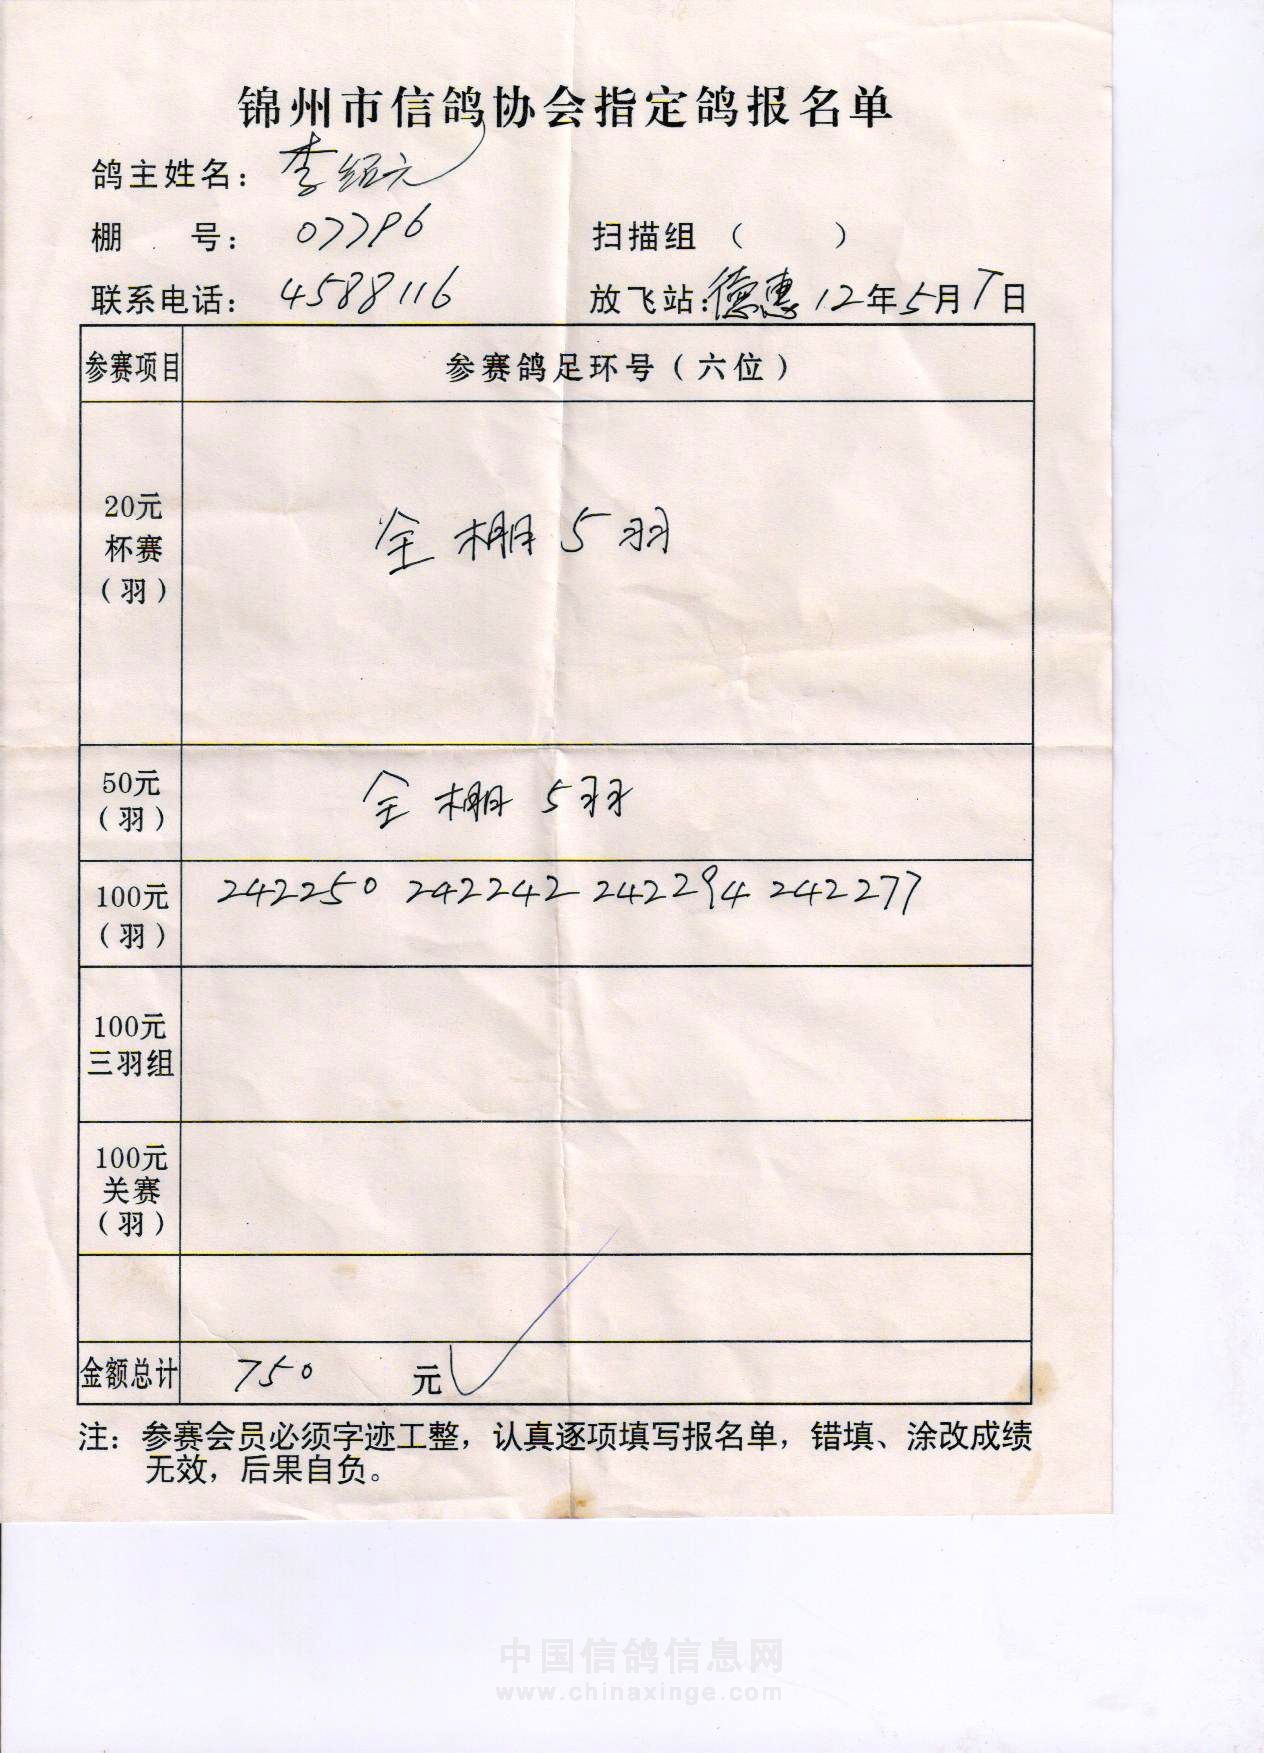 锦州市信鸽协会指定鸽报名单
鸽主姓名：李绍元
棚 号：07796 扫描组（ ）
联系电话：4588116 放飞站：德惠 12年5月7日
参赛项目 参赛鸽足环号（六位）
20元
杯赛
（羽）
全棚5羽
50元
（羽）
全棚5羽
100元
（羽）
242250 242242 242294 242277
100元
三羽组
100元
关赛
（羽）
金额总计 750 元
注：参赛会员必须字迹工整，认真逐项填写报名单，错填、涂改成绩
无效，后果自负。
中国信鸽信息网
www.chinaxinge.com